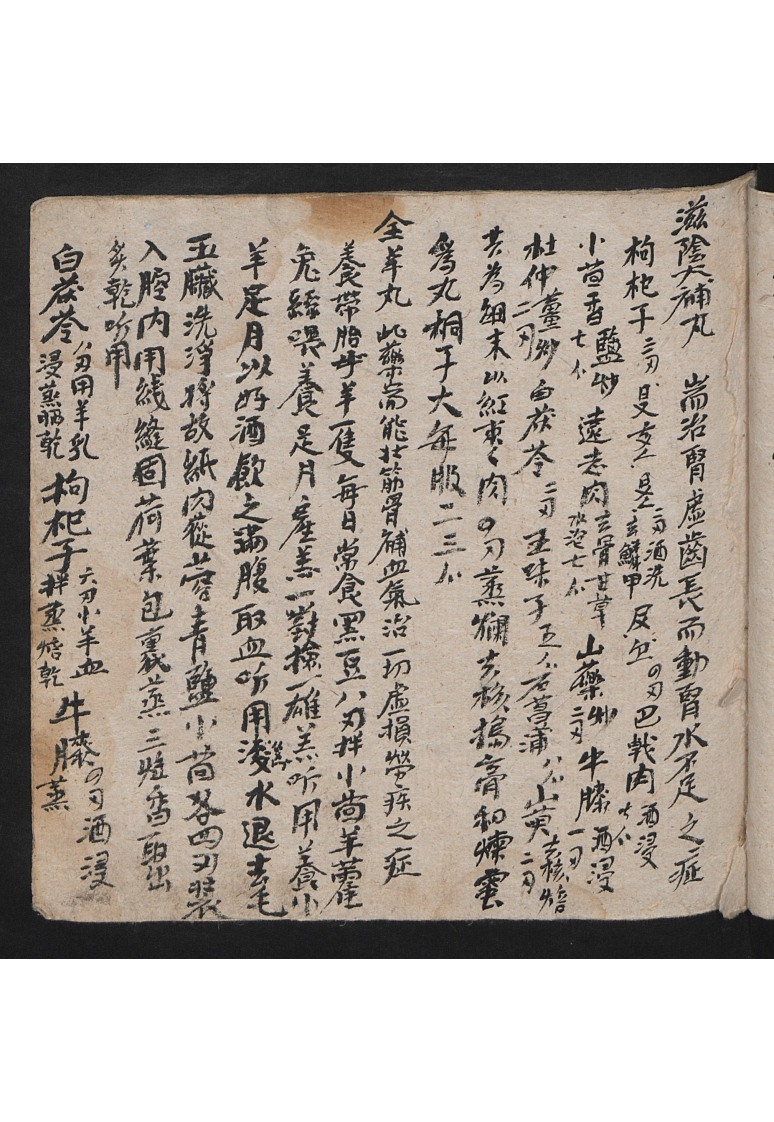 滋陰大補丸 耑治腎虛齒長而動腎水不足之症
枸杞子二刄 熟 二刄酒洗 去鱗甲 四刄 巴戟肉 酒浸七分
小茴香 鹽炒七分 遠志肉 去骨甘草水泡七分 山藥 炒二刄 牛膝 酒浸一刄
杜仲 薑炒二刄 白茯苓 二刄 五味子 五分 石菖蒲 八分 山萸 去核焙二刄
共為細末以紅棗肉四刄蒸爛去核搗膏和煉蜜
為丸桐子大每服二三分
全羊丸 此藥耑能壯筋骨補血氣治一切虛損勞疾之症
養帶胎母羊一隻每日常食黑豆八刄拌小茴羊藿
兔絲喂養足月產羔一對撿一雄羔听用養小
羊足月以好酒飲之滿腹取血听用滾水退去毛
五臟洗淨將故紙肉蓯蓉青鹽小茴各四刄裝
入腔內用綫縫固荷葉包裹蒸三炷香取出
炙乾听用
白茯苓 用羊乳浸蒸晒乾 枸杞子 六刄小羊血拌蒸焙乾 牛膝 四刄酒浸蒸